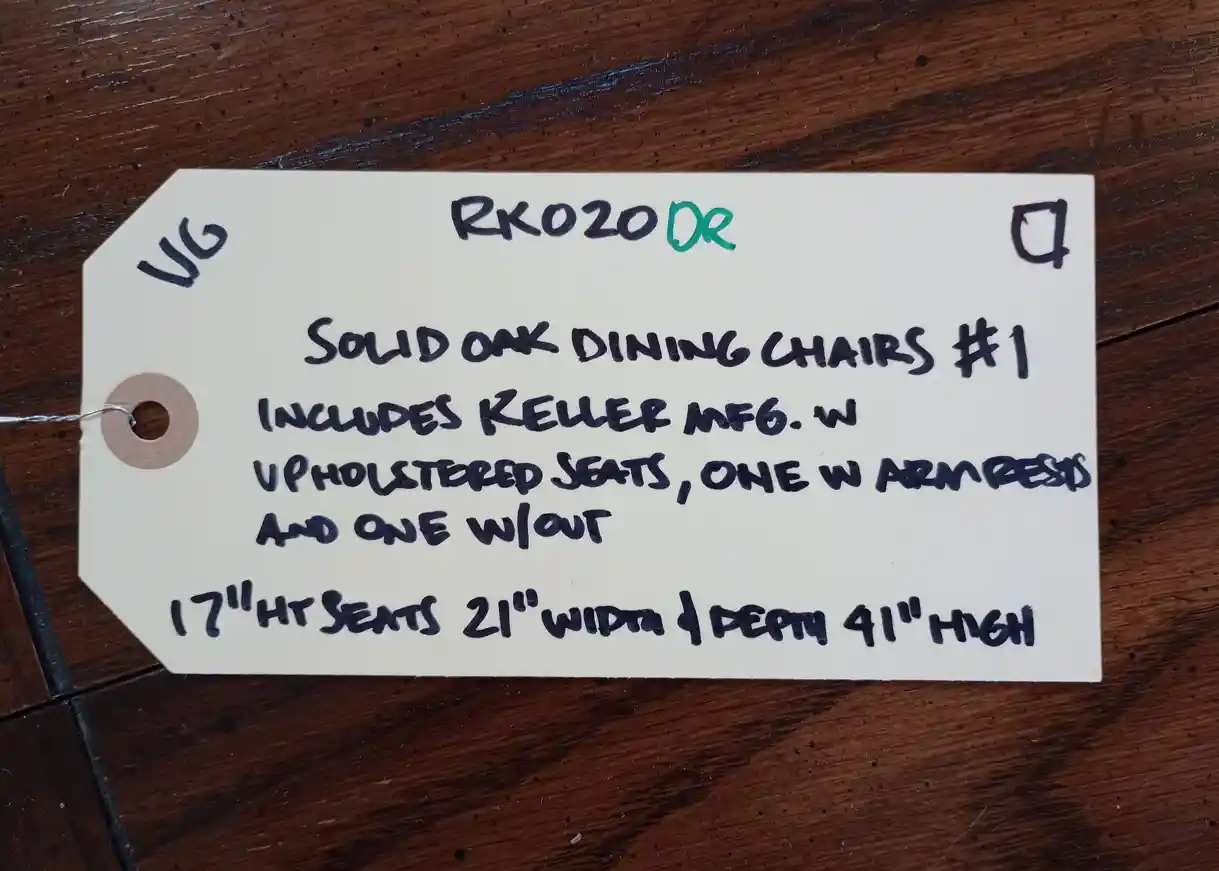 VG
RK020DR
SOLID OAK DINING CHAIRS #1
INCLUDES KELLER MFG. W
UPHOLSTERED SEATS, ONE W ARMRESTS
AND ONE W/OUT
17" HT SEATS 21" WIDTH & DEPTH 41" HIGH